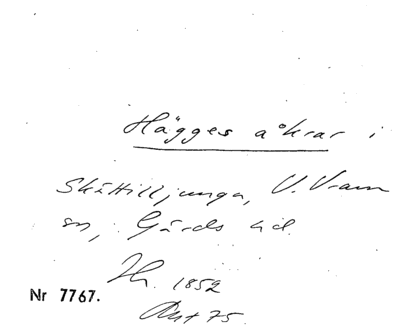 Hägges åkrar i
Skättilljunga, V. Vram
sn, Gärds hd.
1852
Nr 7767.
75